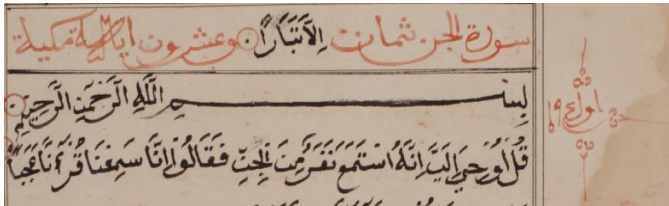 سورة الجن ثمان اِلَّا تَبَارًا وعشرون اية مكية
بِسْمِ اللَّهِ الرَّحْمَنِ الرَّحِيمِ
قُلْ اُوحِيَ اِلَيَّ اَنَّهُ اسْتَمَعَ نَفَرٌ مِنَ الْجِنِّ فَقَالُوا اِنَّا سَمِعْنَا قُرْءَانًا عَجَبًا